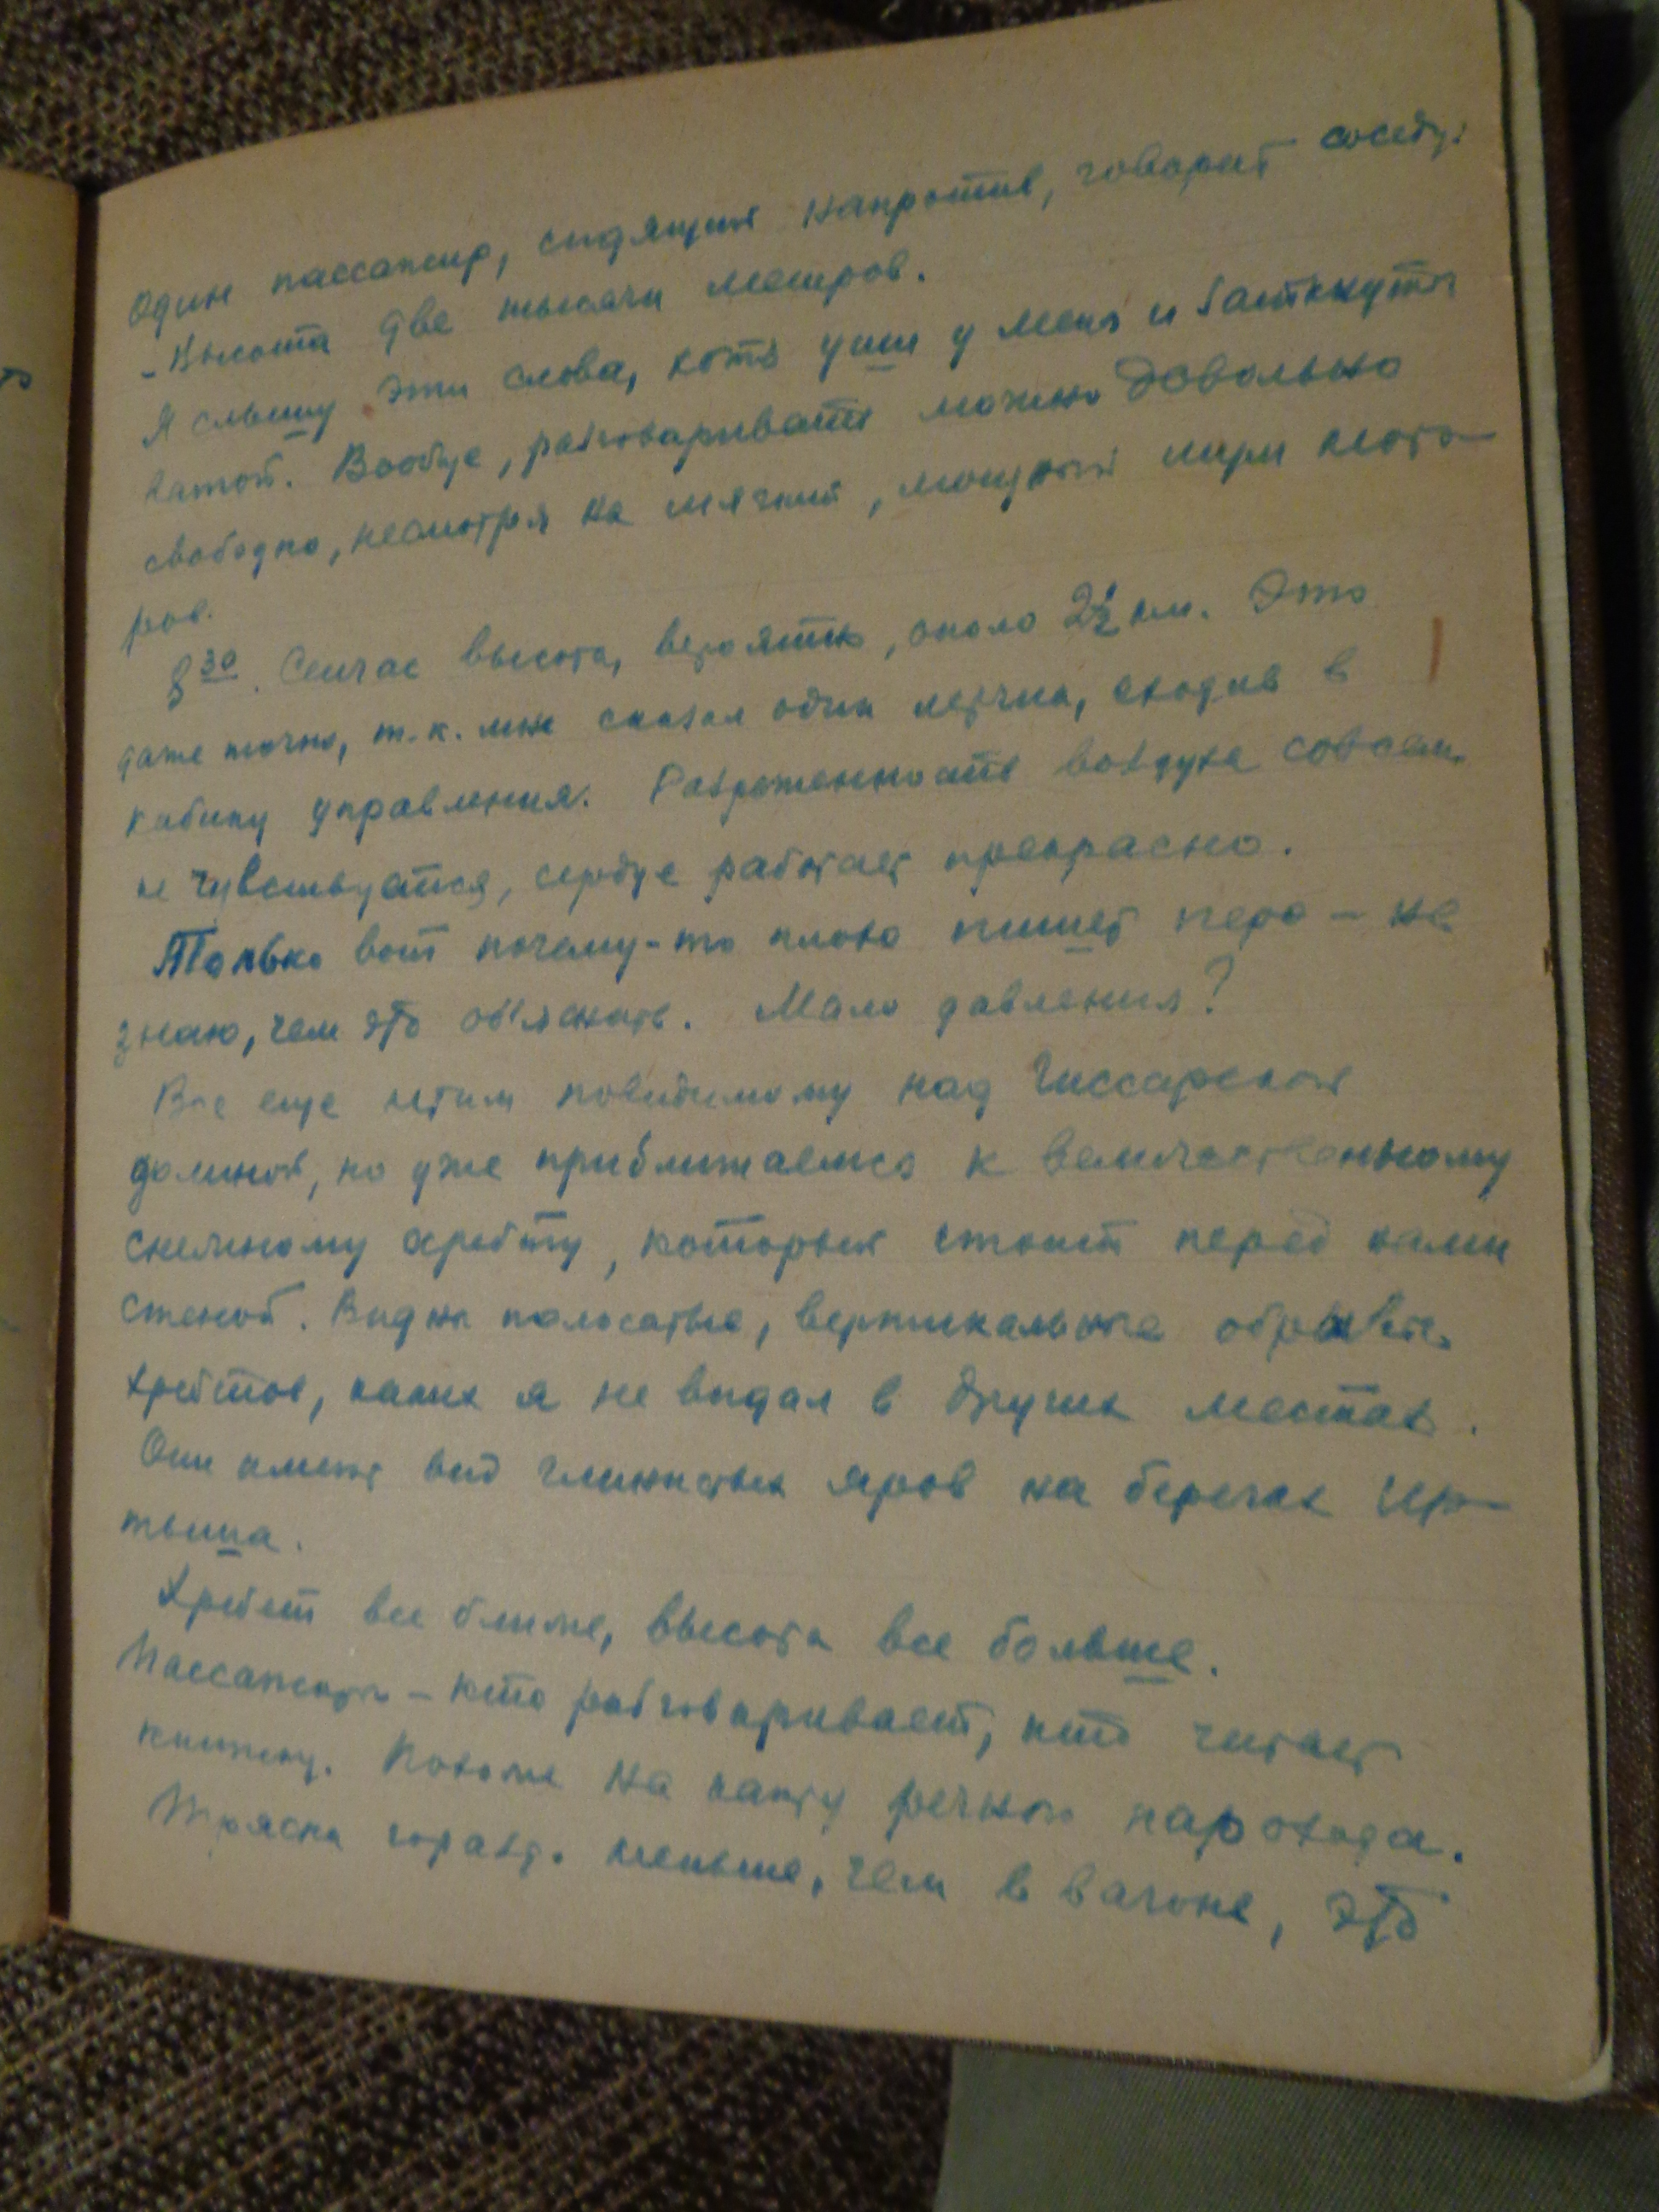 Один пассажир, сидящий напротив, говорит соседу:
- Высота две тысячи метров.
Я слышу эти слова, хотя уши у меня и заткнуты
ватой. Вообще, разговаривать можно довольно
свободно, несмотря на мягкий, мощный шум мото-
ров.
8 30. Сейчас высота, вероятно, около 2 1/2 км. Это
даже точно, т.к. мне сказал один летчик, входив в
кабину управления. Разреженность воздуха совсем
не чувствуется, сердце работает прекрасно.
Только вот почему-то плохо пишет перо - не
знаю, чем это об'яснить. Мало давления?
Все еще летим повидимому над Гиссарской
долиной, но уже приближаемся к величественному
снежному хребту, который стоит перед нами
стеной. Видны полосатые, вертикальные обрывы
хребтов, каких я не видал в других местах.
Они имеют вид глинистых яров на берегах Ир-
тыша.
Хребет все ближе, высота все больше.
Пассажиры - кто разговаривает, кто читает
книжку. Похоже на каюту речного парохода.
Тряска горазд. меньше, чем в вагоне, это